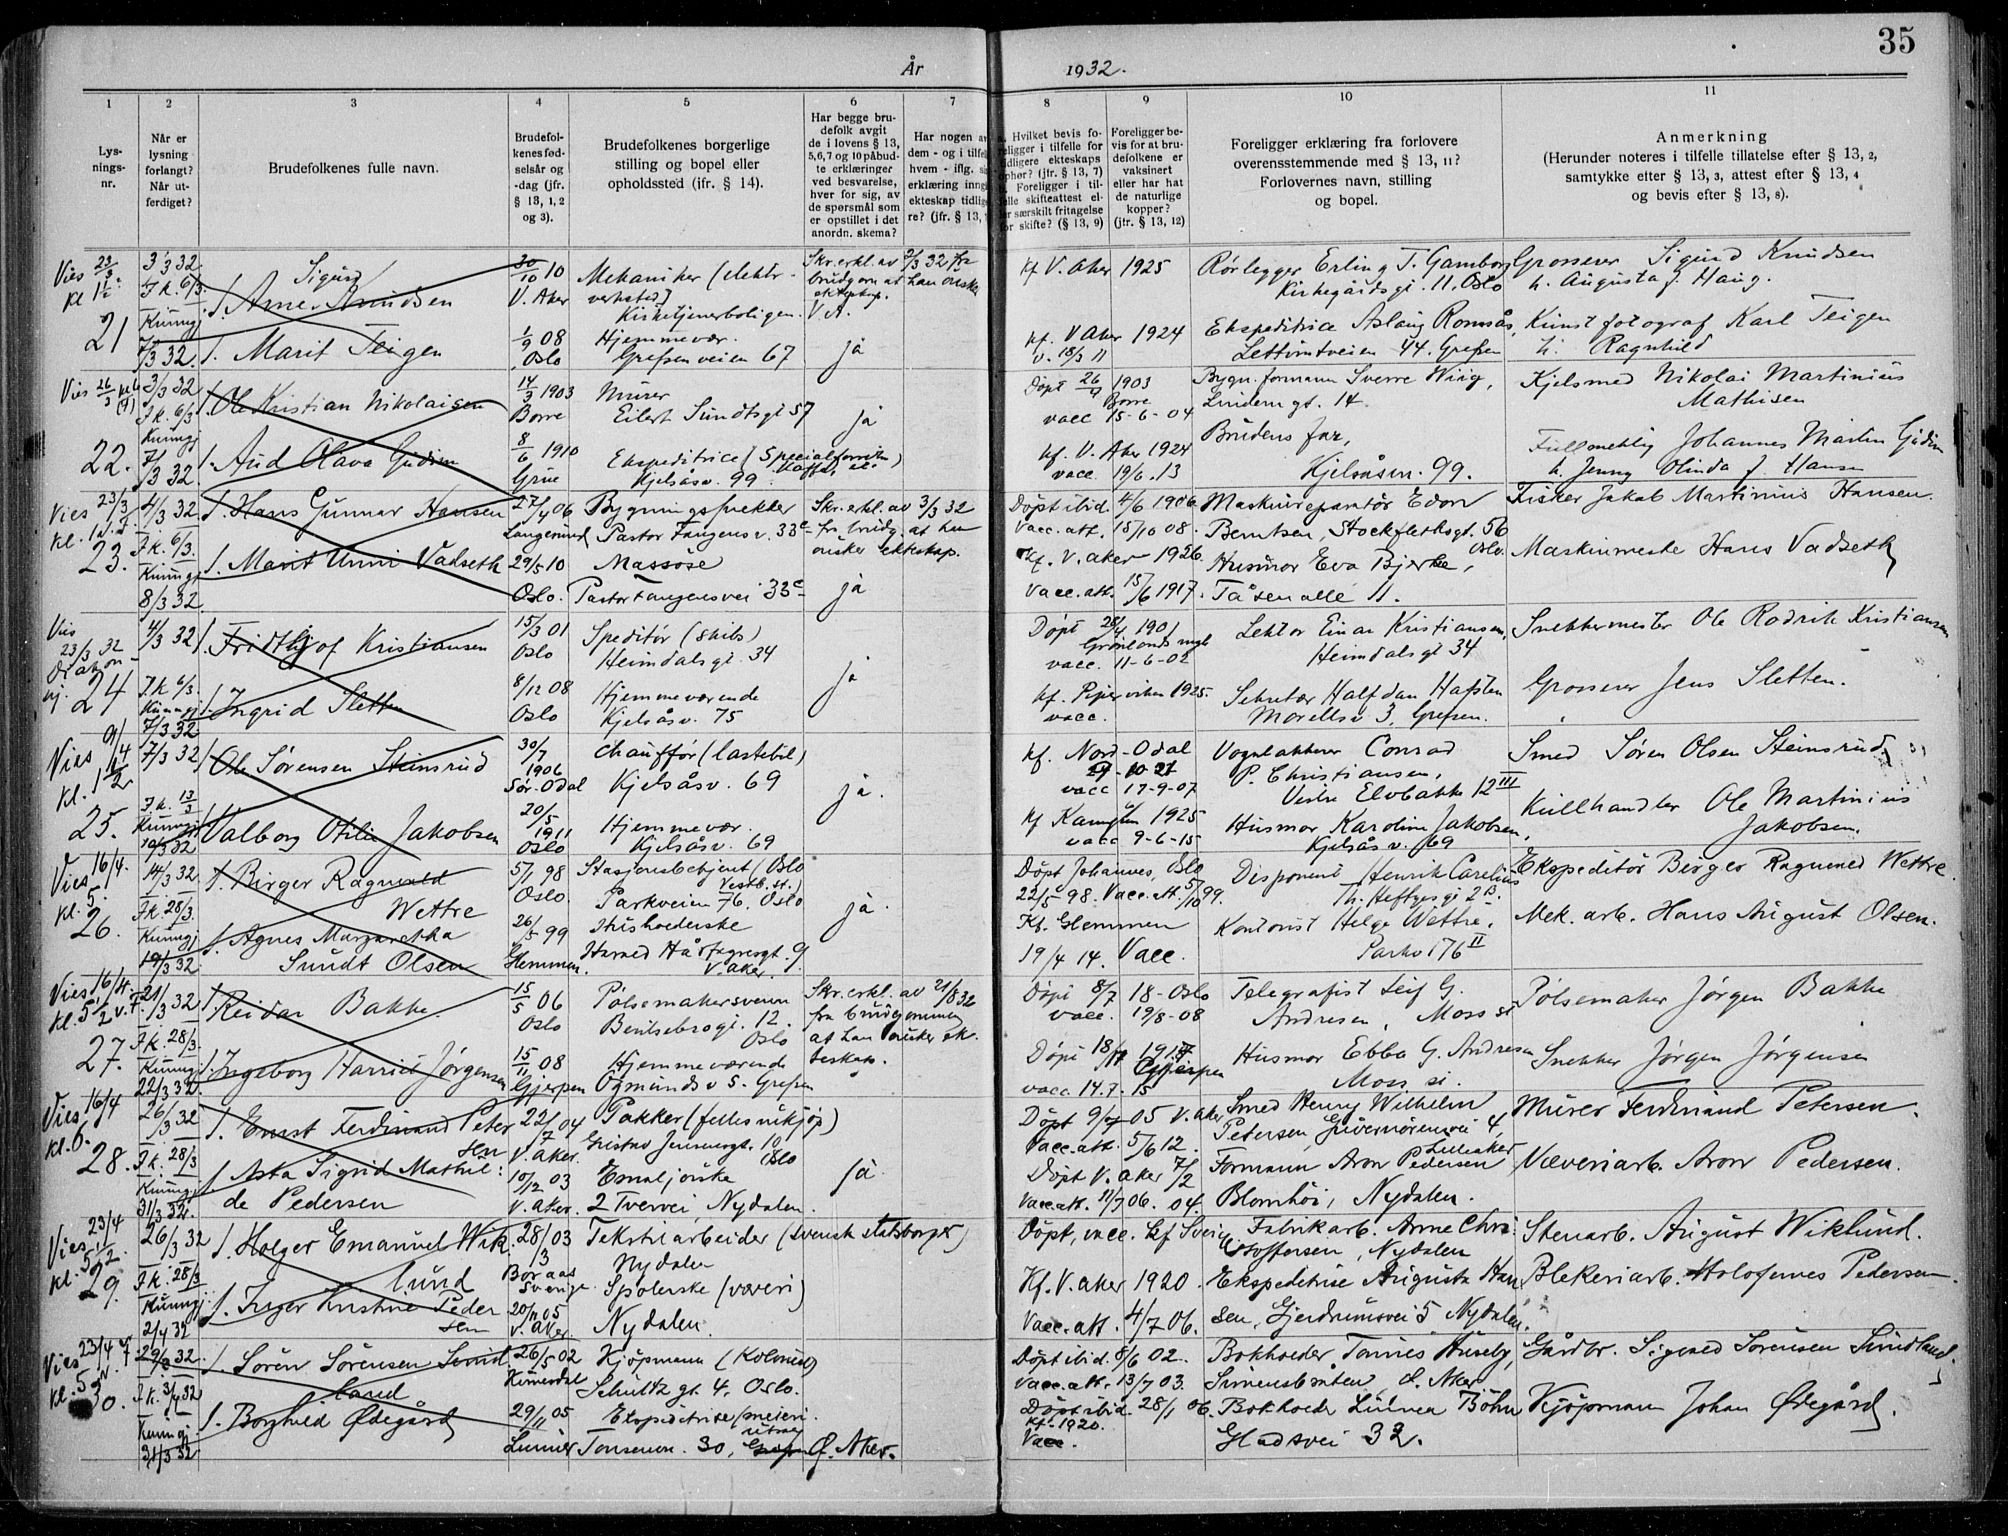 35
År 1932.
1 2 3 4 5 6 7 8 9 10 11
Lys-
nings-
nr.
Når er
lysning
forlangt?
Når ut-
ferdiget?
Brudefolkenes fulle navn.
Brudefol-
kenes fød-
selsår og
-dag (jfr.
§ 13, 1, 2
og 3).
Brudefolkenes borgerlige
stilling og bopel eller
opholdssted (ifr. § 14).
Har begge bru-
defolk avgit
de i lovens § 13,
5,6,7 og 10 påbud-
te erklæringer
ved besvarelse,
hver for sig, av
de spørsmål som
er opstillet i det
anordn. skema?
Har nogen av
dem - og i tilfelle
hvem - iflg.
erklæring inngått
ekteskap tidlige-
re? (jfr. § 13,
Hvilket bevis fo-
religger i tilfelle for
tidligere ekteskaps
ophør? (jfr. § 13, 7)
Foreligger i til-
felle skifteattest el-
ler særskilt fritagelse
for skifte? (§ 13, 9)
Foreligger be-
vis for at bru-
defolkene er
vaksinert
eller har hat
de naturlige
kopper?
(jfr. § 13, 12)
Foreligger erklæring fra forlovere
overensstemmende med § 13, 11?
Forlovernes navn, stilling
og bopel.
Anmerkning
(Herunder noteres i tilfelle tillatelse efter § 13, 2,
samtykke efter § 13, 3, attest efter § 13, 4
og bevis efter § 13, 8).
Vies 23/3 kl 1 1/2
21
3/3 32
F.k. 6/3
Kunngj.
7/3 32
Sigurd
Arne Knudsen
30/10 10
V. Aker
Mekaniker (elektr.
verksted)
Kirketjenerboligen. V.A.
Skr. erkl. av 3/3 32 fra
brudgom at han ønsker
ekteskap.
kf V. Aker 1925
Rørlegger Erling T. Gamborg
Kirkegårdsgt. 11. Oslo
Grosserer Sigurd Knudsen
h. Augusta f. Haug.
Marit Teigen
1/9 08
Oslo
Hjemmevær.
Grefsenveien 67
ja
kf. V Aker 1924
v. 18/3 11
Ekspeditrice Aslaug Romsås,
Lettvintveien 44. Grefsen
Kunstfotograf Karl Teigen
h. Ragnhild
Vies 26/3 kl 6
22.
3/3 32
F.k. 6/3
Kunngj
7/3 32
Ole Kristian Nikolaisen
14/3 1903
Borre
Murer
Eilert Sundtsgt 57
ja
Døpt 26/4 1903
Borre
vacc 15-6-04
Bygn. formann Sverre Wiig,
Lindemgt. 14.
Kjelsmed Nikolai Martinius
Mathisen
Aud Olava Gudim
8/6 1910
Grue
Ekspeditrice (Specialforretn.
Kaffe)
Kjelsåsv. 99
kf. V. Aker 1924
vacc 19/6. 13
Brudens far,
Kjelsåsvn. 99.
Fullmektig Johannes Martin Gudim
h. Jenny Olinda f. Hansen
Vies 23/3
23.
4/3 32
F.k. 6/3.
Kunngj
8/3 32
Hans Gunnar Hansen
27/4 06
Langesund
Bygningssnekker
Pastor Fangens v. 33c
Skr. erkl. av 3/3 32
fra brudg. at han
ønsker ekteskap.
Døpt ibid. 4/6 1906
Vacc. att. 15/10 08.
Maskinreparatør Edon
Berntsen, Stockflethsgt. 56
Oslo.
Fisker Jakob Martinius Hansen.
Marit Unni Vadseth
29/5 10
Oslo.
Massøse
Pastor Fangens vei 33c
ja
Kf. V. aker 1926.
Vacc. att. 15/6 1917.
Husmor Eva Bjerke,
Tåsen alle 11.
Maskinmester Hans Vadseth
Vies
23/3 32
24
4/3 32
F.k 6/3.
Kunngj
7/3 32
Fridthjof Kristiansen
15/3 01
Oslo
Speditør (skibs)
Heimdalsgt. 34
ja
Døpt 28/4 1901
Grønlands mgh
vacc. 11-6-02
Lektor Einar Kristiansen,
Heimdalsgt 34
Snekkermester Ole Rodrik Kristiansen
Ingrid Sletten
8/12 08
Oslo
Hjemmeværende
Kjelsåsv. 75
kf. Pipervikn 1925.
vacc.
Sekretær Halfdan Hafsten
Morellsv 3. Grefsen.
Grosserer Jens Sletten.
Vies 9/4
kl. 1 1/2
25.
7/3 32
F.k. 13/3
Kunngj
10/3 32
Ole Sørensen Steinsrud
30/7
1906
Sør-Odal
Chauffør (lastebil)
Kjelsåsv. 69
ja.
kf. Nord-Odal
vacc 17-9-07
Vognlakkerer Conrad
P. Christiansen,
Vestre Elvbakke 12 III
Smed Søren Olsen Steinsrud
Valborg Otilie Jakobsen
20/5
1911
Oslo
Hjemmevær.
Kjelsåsv. 69
kf Kampen 1925
vacc 9-6-15
Husmor Karoline Jakobsen,
Kjelsåsv. 69
Kullhandler Ole Martinius
Jakobsen.
Vies 16/4.
kl. 5.
26.
14/3 32
F.k. 28/3.
Kunngj
19/3 32
Birger Ragnvald
Wettre
5/1 98
Oslo.
Stasjonsbetjent (Oslo
Vestb. st.)
Parkveien 76. Oslo
ja.
Døpt Johannes, Oslo
22/5 98. Vacc. att 5/10 99.
Disponent Henrik Carelius
Th. Heftyesgt 2 B.
Ekspeditør Birger Ragnvald Wettre.
Agnes Margaretha
Sundt Olsen
26/5 99
Glemmen.
Husholderske
Harald Hårfagresgt. 9
V. aker.
Kf. Glemmen
19/4 14. Vacc.
Kontorist Helge Wettre,
Parkv 76 II
Mek. arb. Hans August Olsen.
Vies 16/4.
kl. 5 1/2
27.
21/3 32
F.k. 28/3.
Kunngj
22/3 32.
Reidar Bakke.
15/5 06
Oslo
Pølsemakersvenn
Bentsebrogt. 12.
Oslo
Skr. erkl. av 21/3 32
fra brudgommen
at han ønsker ek-
teskap.
Døpt 8/7 18-Oslo
vacc. 19/8-08
Telegrafist Leif G.
Andresen, Moss
Pølsemaker Jørgen Bakke
Ingeborg Harriet Jørgensen
15/11 08
Gjerpen
Hjemmeværende
Ogmunds v 5. Grefsen
vacc. 14.7. 15
Gjerpen
Husmor Ebba G. Andresen
Moss
Snekker Jørgen Jørgensen
Vies 16/4
kl. 6.
28.
26/3 32
F.k. 28/3
Kunngj.
31/3 32.
Ernst Ferdinand Peter
sen
22/7 04
V. aker.
Pakker (fellesinkjøp)
Gustav Jensensgt. 10
Oslo
ja
Døpt 9/7 05 V. aker
Vacc. att. 5/6 12.
Smed Henry Wilhelm
Petersen Guvernørensvei 4,
Lilleaker
Murer Ferdinand Petersen.
Asta Sigrid Mathil-
de Pedersen
10/12 03
V. aker.
Emaljørske
2 Tvervei, Nydalen.
Døpt V. aker 7/2
Vacc. att. 11/7 06. 04.
Formann Aron Pedersen
Blomhøi, Nydalen.
Væveriarb. Aron Pedersen.
Vies 23/4
kl. 5 1/2.
29.
26/3 32
F.k. 28/3
Kunngj
2/4 32
Holger Emanuel Wik
lund
28/3 03
Boraas
Sverige
Tekstilarbeider (svensk statsborger)
Nydalen
Døpt, vacc. Kf Sverige
Fabrikarb. Arne Chri-
stoffersen, Nydalen
Stenarb. August Wiklund.
Inger Kristine Peder
sen
20/11 05
V. aker.
Spolerske (væveri)
Nydalen.
Kf. V. aker 1920.
Vacc. att. 4/7 06.
Ekspeditrise Augusta Han
sen, Gjerdrumsvei 5 Nydalen.
Blekeriarb. Holofernes Pedersen.
Vies 23/4
kl. 5
30.
29/3 32.
F.k. 3/4 32
Kunngj
31/3 32
Søren Sørensen Sund
land
26/5 02
Kjøpmann (Kolonial)
Schultz gt. 4. Oslo.
Døpt ibid. 8/6 02.
Vacc. att. 13/7 03.
Bokholder Tønnes Huseby,
Simensbråten Ø. Aker
Gårdbr. Sigvald Sørensen Sundland.
Borghild Ødegård
29/11 05
Lunner
Ekspeditrise (meieri
utsalg
Tonsenvn. 30, Grefsen Ø. Aker.
Døpt ibid 28/1 06.
Kf. 1920.
Vacc.
Bokholder Böhn
Gladsvei 32.
Kjøpmann Johan Ødegård.